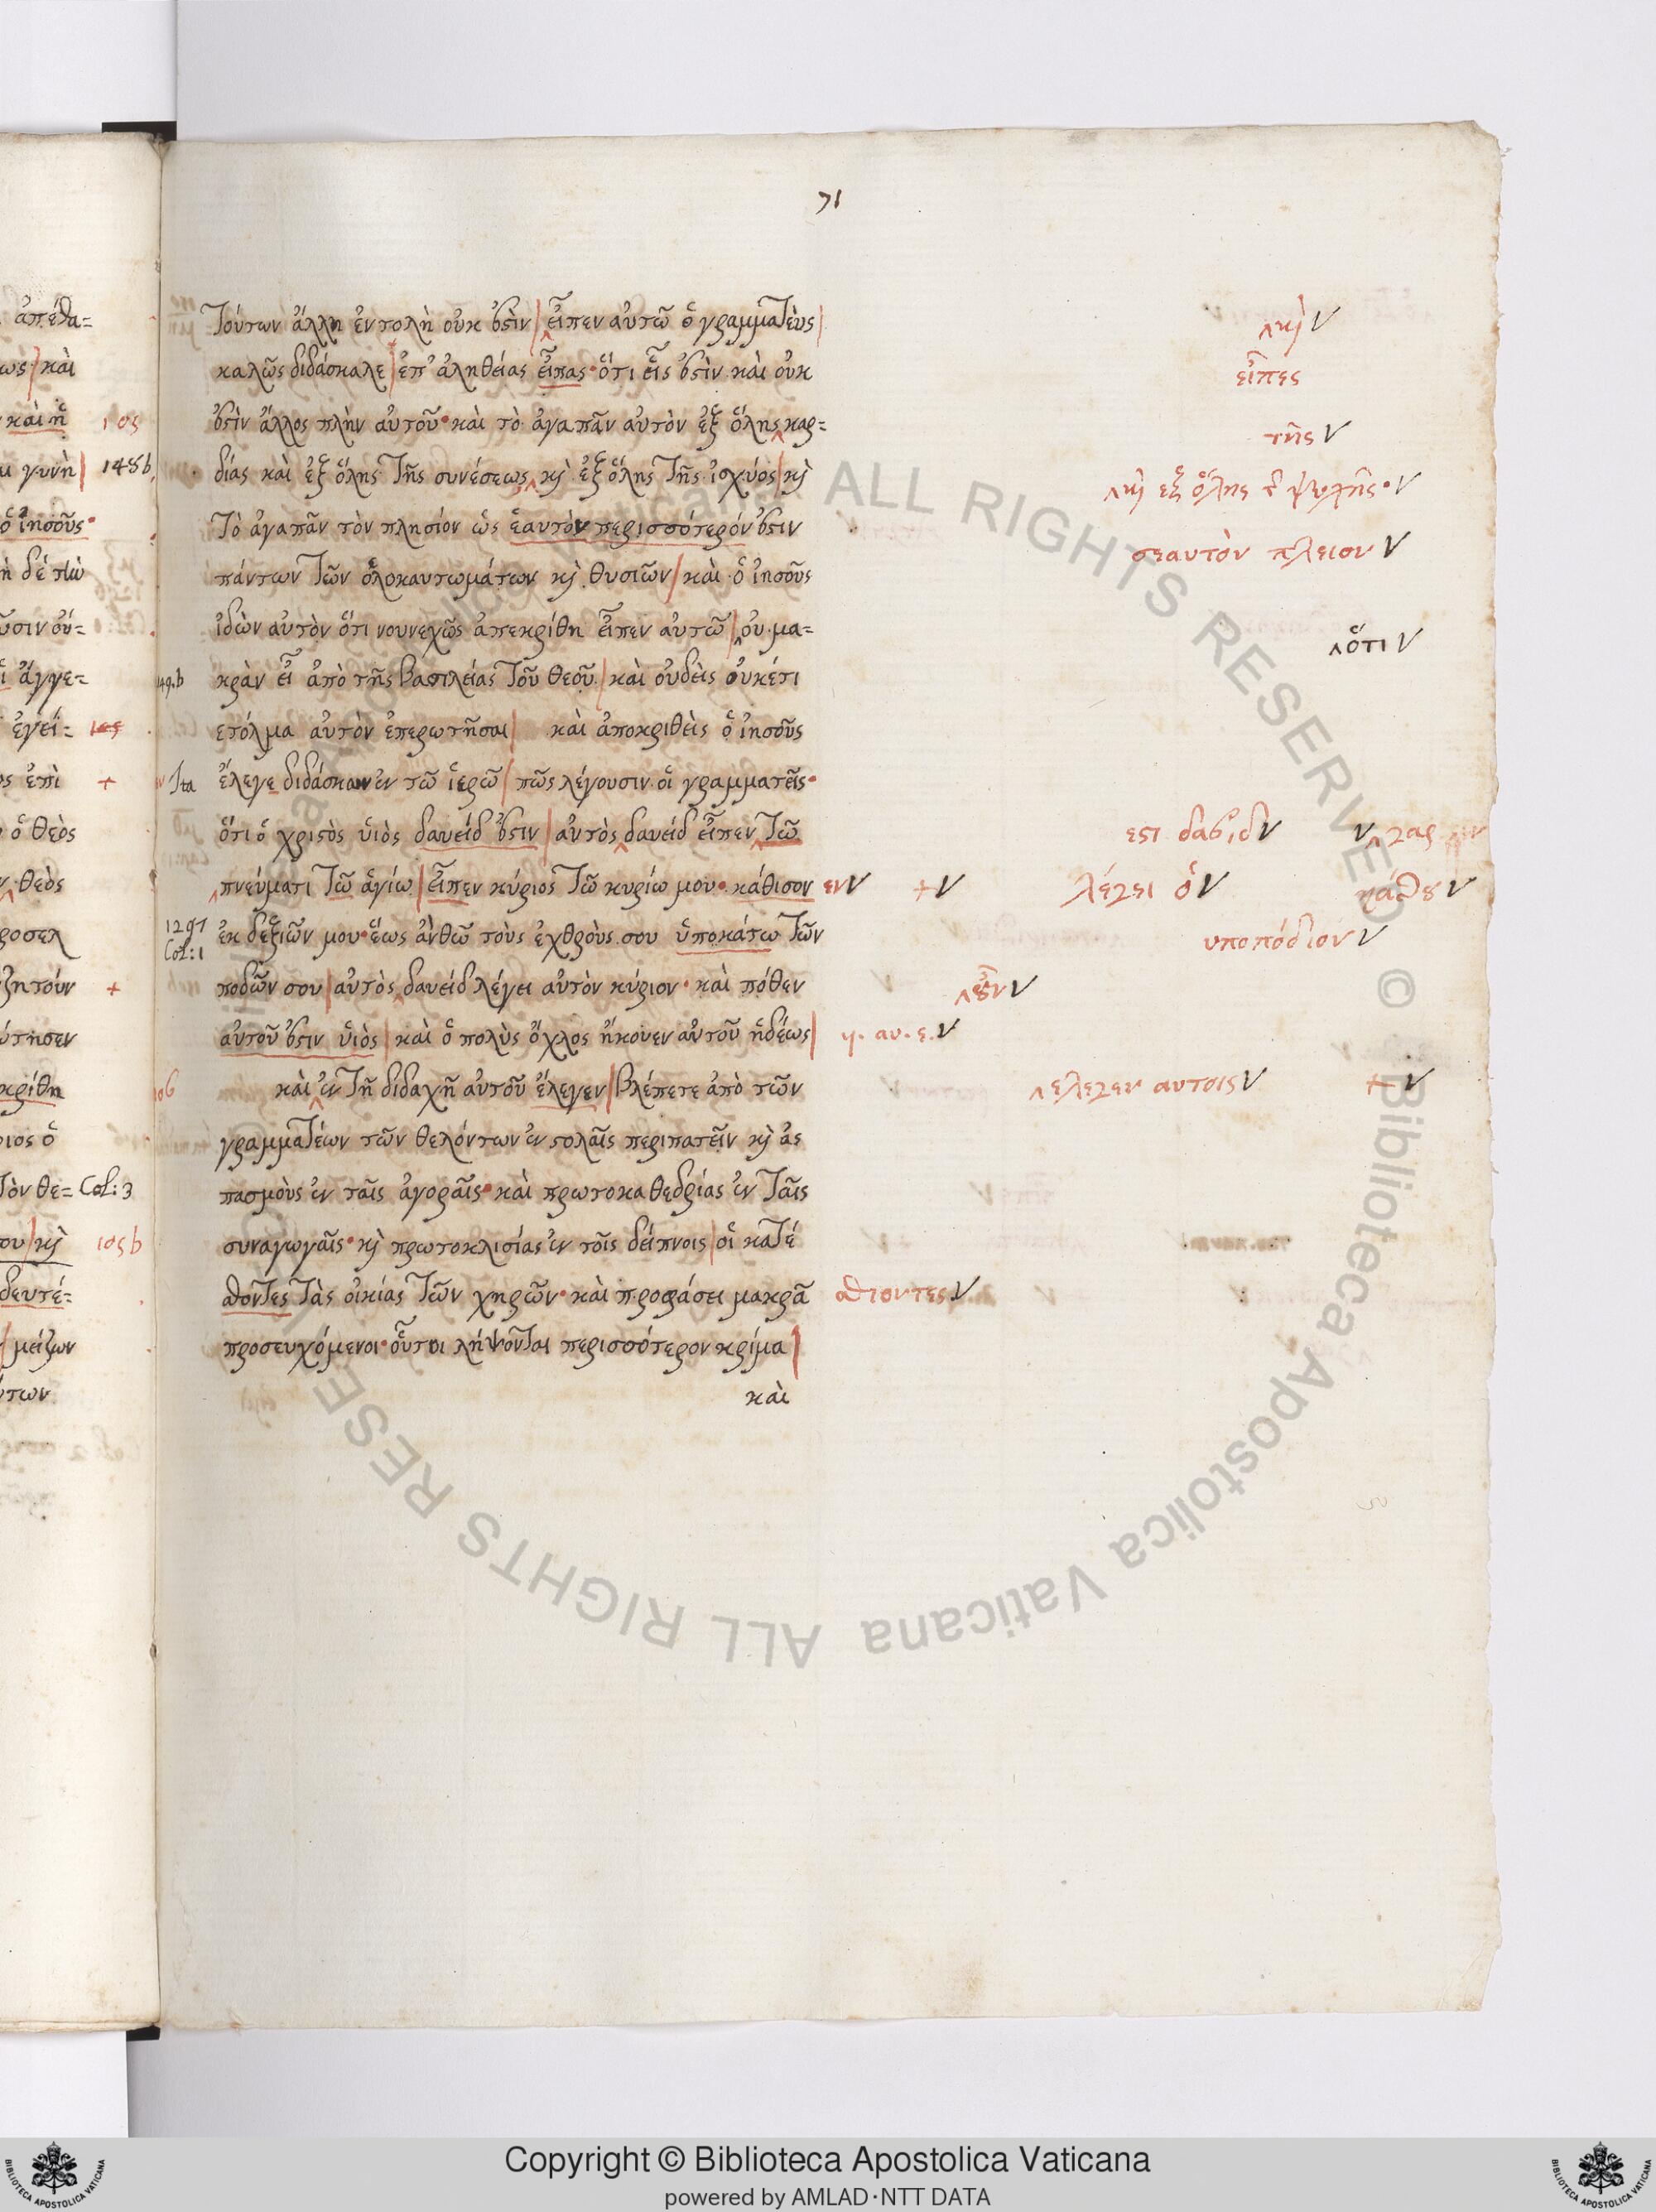 71
τούτων ἄλλη ἐντολὴ οὐκ ἐστὶν εἶπεν αὐτῶ ὁ γραμματεὺς
καλῶς διδάσκαλε ἐπ' ἀληθείας εἶπας· ὅτι εἷς ἐστὶν καὶ οὐκ
ἐστὶν ἄλλος πλὴν αὐτοῦ· καὶ τὸ ἀγαπᾶν αὐτὸν ἐξ ὅλης καρ=
δίας καὶ ἐξ ὅλης τῆς συνέσεως κὶ ἐξ ὅλης τῆς ἰσχύος κὶ
τὸ ἀγαπᾶν τὸν πλησίον ὡς ἑαυτὸν περισσότερόν ἐστιν
πάντων τῶν ὁλοκαυτωμάτων κὶ θυσιῶν καὶ ὁ ἰησοῦς
ἰδὼν αὐτὸν ὅτι νουνεχῶς ἀπεκρίθη εἶπεν αὐτῶ οὐ μα=
κρὰν εἶ ἀπὸ τῆς βασιλείας τοῦ θεοῦ καὶ οὐδεὶς οὐκέτι
ετόλμα αὐτὸν ἐπερωτῆσαι καὶ ἀποκριθεὶς ὁ ἰησοῦς
ἔλεγε διδάσκων ἐν τῶ ἱερῶ πῶς λέγουσιν οἱ γραμματεῖς·
ὅτι ὁ χριστὸς ὑιὸς δαυείδ ἐστιν αὐτὸς δαυείδ εἶπεν τῶ
πνεύματι τῶ ἁγίω εἶπεν κύριος τῶ κυρίω μου· κάθισον
ἐκ δεξιῶν μου· ἕως ἂν θῶ τοὺς ἐχθρούς σου ὑποκάτω τῶν
ποδῶν σου αὐτὸς δαυείδ λέγει αὐτὸν κύριον· καὶ πόθεν
αὐτοῦ ἐστιν ὑιὸς καὶ ὁ πολὺς ὄχλος ἤκουεν αὐτοῦ ἡδέως
καὶ ἐν τῆ διδαχῆ αὐτοῦ ἔλεγεν βλέπετε ἀπὸ τῶν
γραμματέων τῶν θελόντων ἐν στολαῖς περιπατεῖν κὶ ἀς
πασμοὺς ἐν ταῖς ἀγοραῖς· καὶ πρωτοκαθεδρίας ἐν ταῖς
συναγωγαῖς· κὶ πρωτοκλισίας ἐν τοῖς δείπνοις οἱ κατέ
σθοντες τὰς οἰκίας τῶν χηρῶν· καὶ προφάσει μακρᾶ
προσευχόμενοι· οὗτοι λήψονται περισσότερον κρίμα
καὶ
κὶ V
εἶπες
τῆς V
κὶ εξ ὅλης τ ψυχῆς· V
σεαυτὸν πλειον V
ὅτι V
εστι δαβιδ V
V γαρ
εν V
+ V
λέγει ὁ V
κάθου V
υποπόδιον V
V
υ. αυ. ε. V
ελεγεν αυτοις V
+ V
σθιοντες V
149.b
Ita
1297
Col: 1
106
ἀπέθα=
ως καὶ
καὶ ἡ
105
γυνὴ
148b
ὁ ἰησοῦς·
ἄγγε=
ἐγεί=
ς ἐπὶ
+
ὁ θεὸς
θεὸς
ροσελ
ζητούν
+
ώτησεν
κρίθη
ριος ὁ
τὸν θε=
Col: 3
ου κὶ
105b
δευτέ=
μείζων
ύτων
Copyright © Biblioteca Apostolica Vaticana
powered by AMLAD·NTT DATA
ALL RIGHTS RESERVED © Biblioteca Apostolica Vaticana
BIBLIOTECA APOSTOLICA VATICANA
BIBLIOTECA APOSTOLICA VATICANA